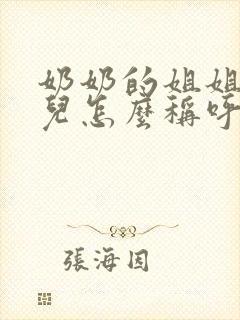 奶奶的姐姐
兒怎麼稱呼
張海因